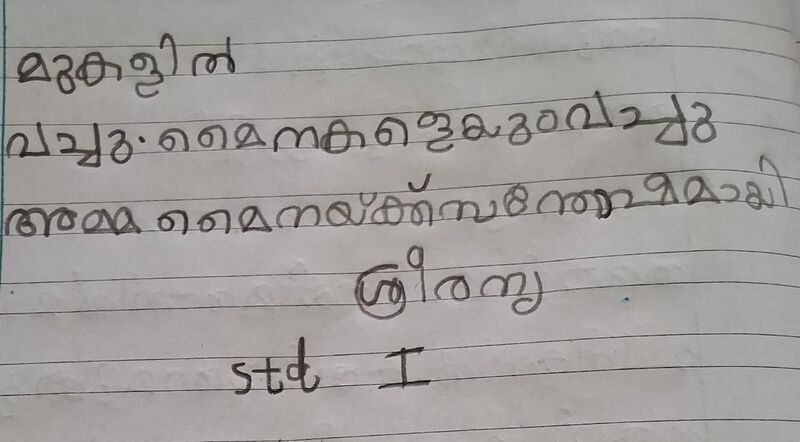 മുകളിൽ
വച്ചു. മൈനകളെയും വച്ചു
അമ്മ മൈനയ്ക്ക് സന്തോഷമായി
ശ്രീരന്യ
std I